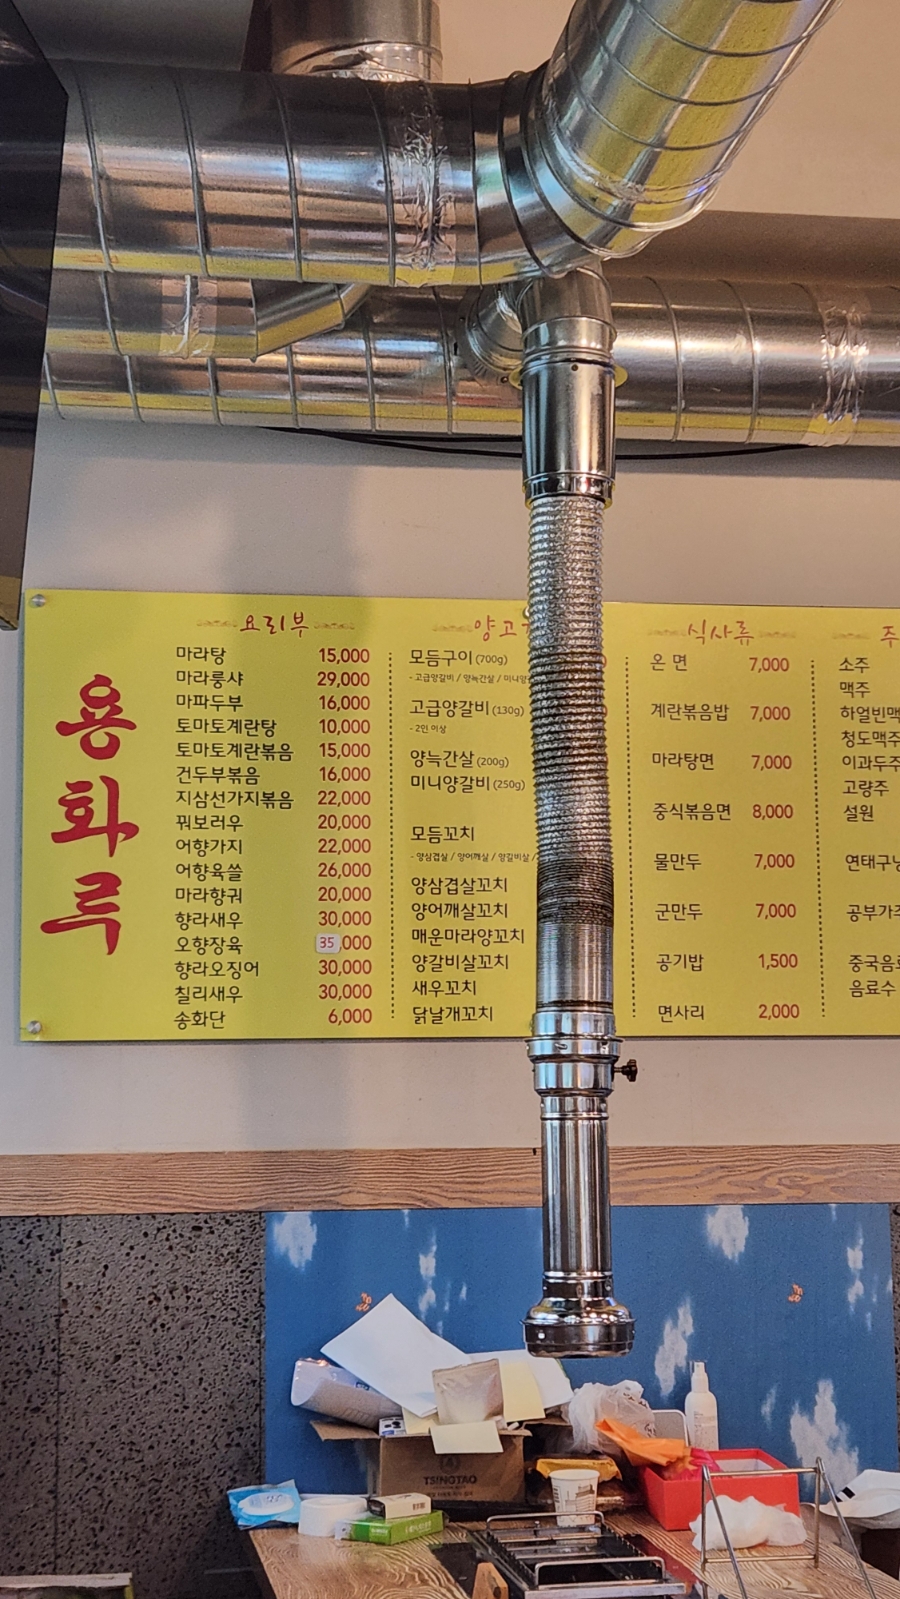 용화루
요리부
마라탕 15,000
마라룽샤 29,000
마파두부 16,000
토마토계란탕 10,000
토마토계란볶음 15,000
건두부볶음 16,000
지삼선가지볶음 22,000
꿔보러우 20,000
어향가지 22,000
어향육쓸 26,000
마라향궈 20,000
향라새우 30,000
오향장육 35,000
향라오징어 30,000
칠리새우 30,000
송화단 6,000
양고
모듬구이 (700g)
- 고급양갈비 / 양늑간살 / 미니양
고급양갈비 (130g)
- 2인 이상
양늑간살 (200g)
미니양갈비 (250g)
모듬꼬치
- 양삼겹살 / 양어깨살 / 양갈비살 /
양삼겹살꼬치
양어깨살꼬치
매운마라양꼬치
양갈비살꼬치
새우꼬치
닭날개꼬치
식사류
온 면 7,000
계란볶음밥 7,000
마라탕면 7,000
중식볶음면 8,000
물만두 7,000
군만두 7,000
공기밥 1,500
면사리 2,000
주
소주
맥주
하얼빈맥
청도맥주
이과두주
고량주
설원
연태구냥
공부가주
중국음료
음료수
TSINGTAO